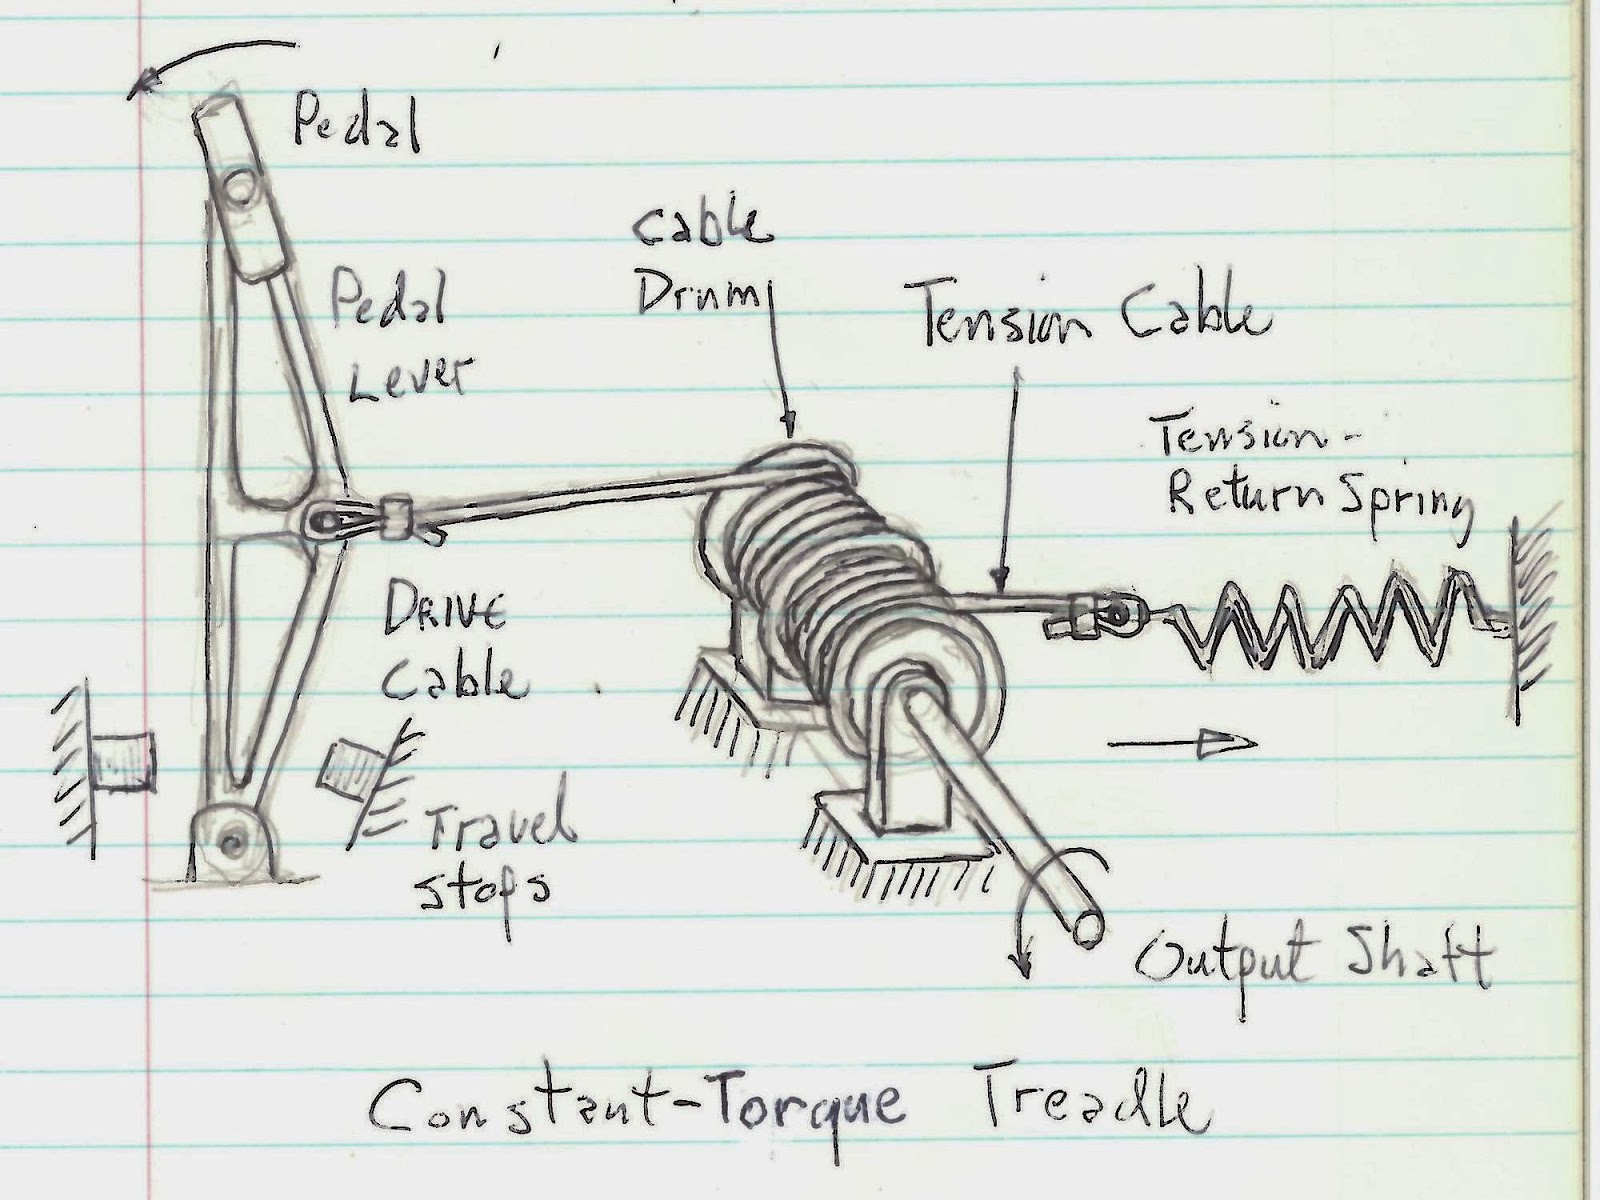 Pedal
Pedal
Lever
Cable
Drum
Tension Cable
Tension-
Return Spring
DRIVE
Cable
Travel
stops
Output Shaft
Constant-Torque Treadle